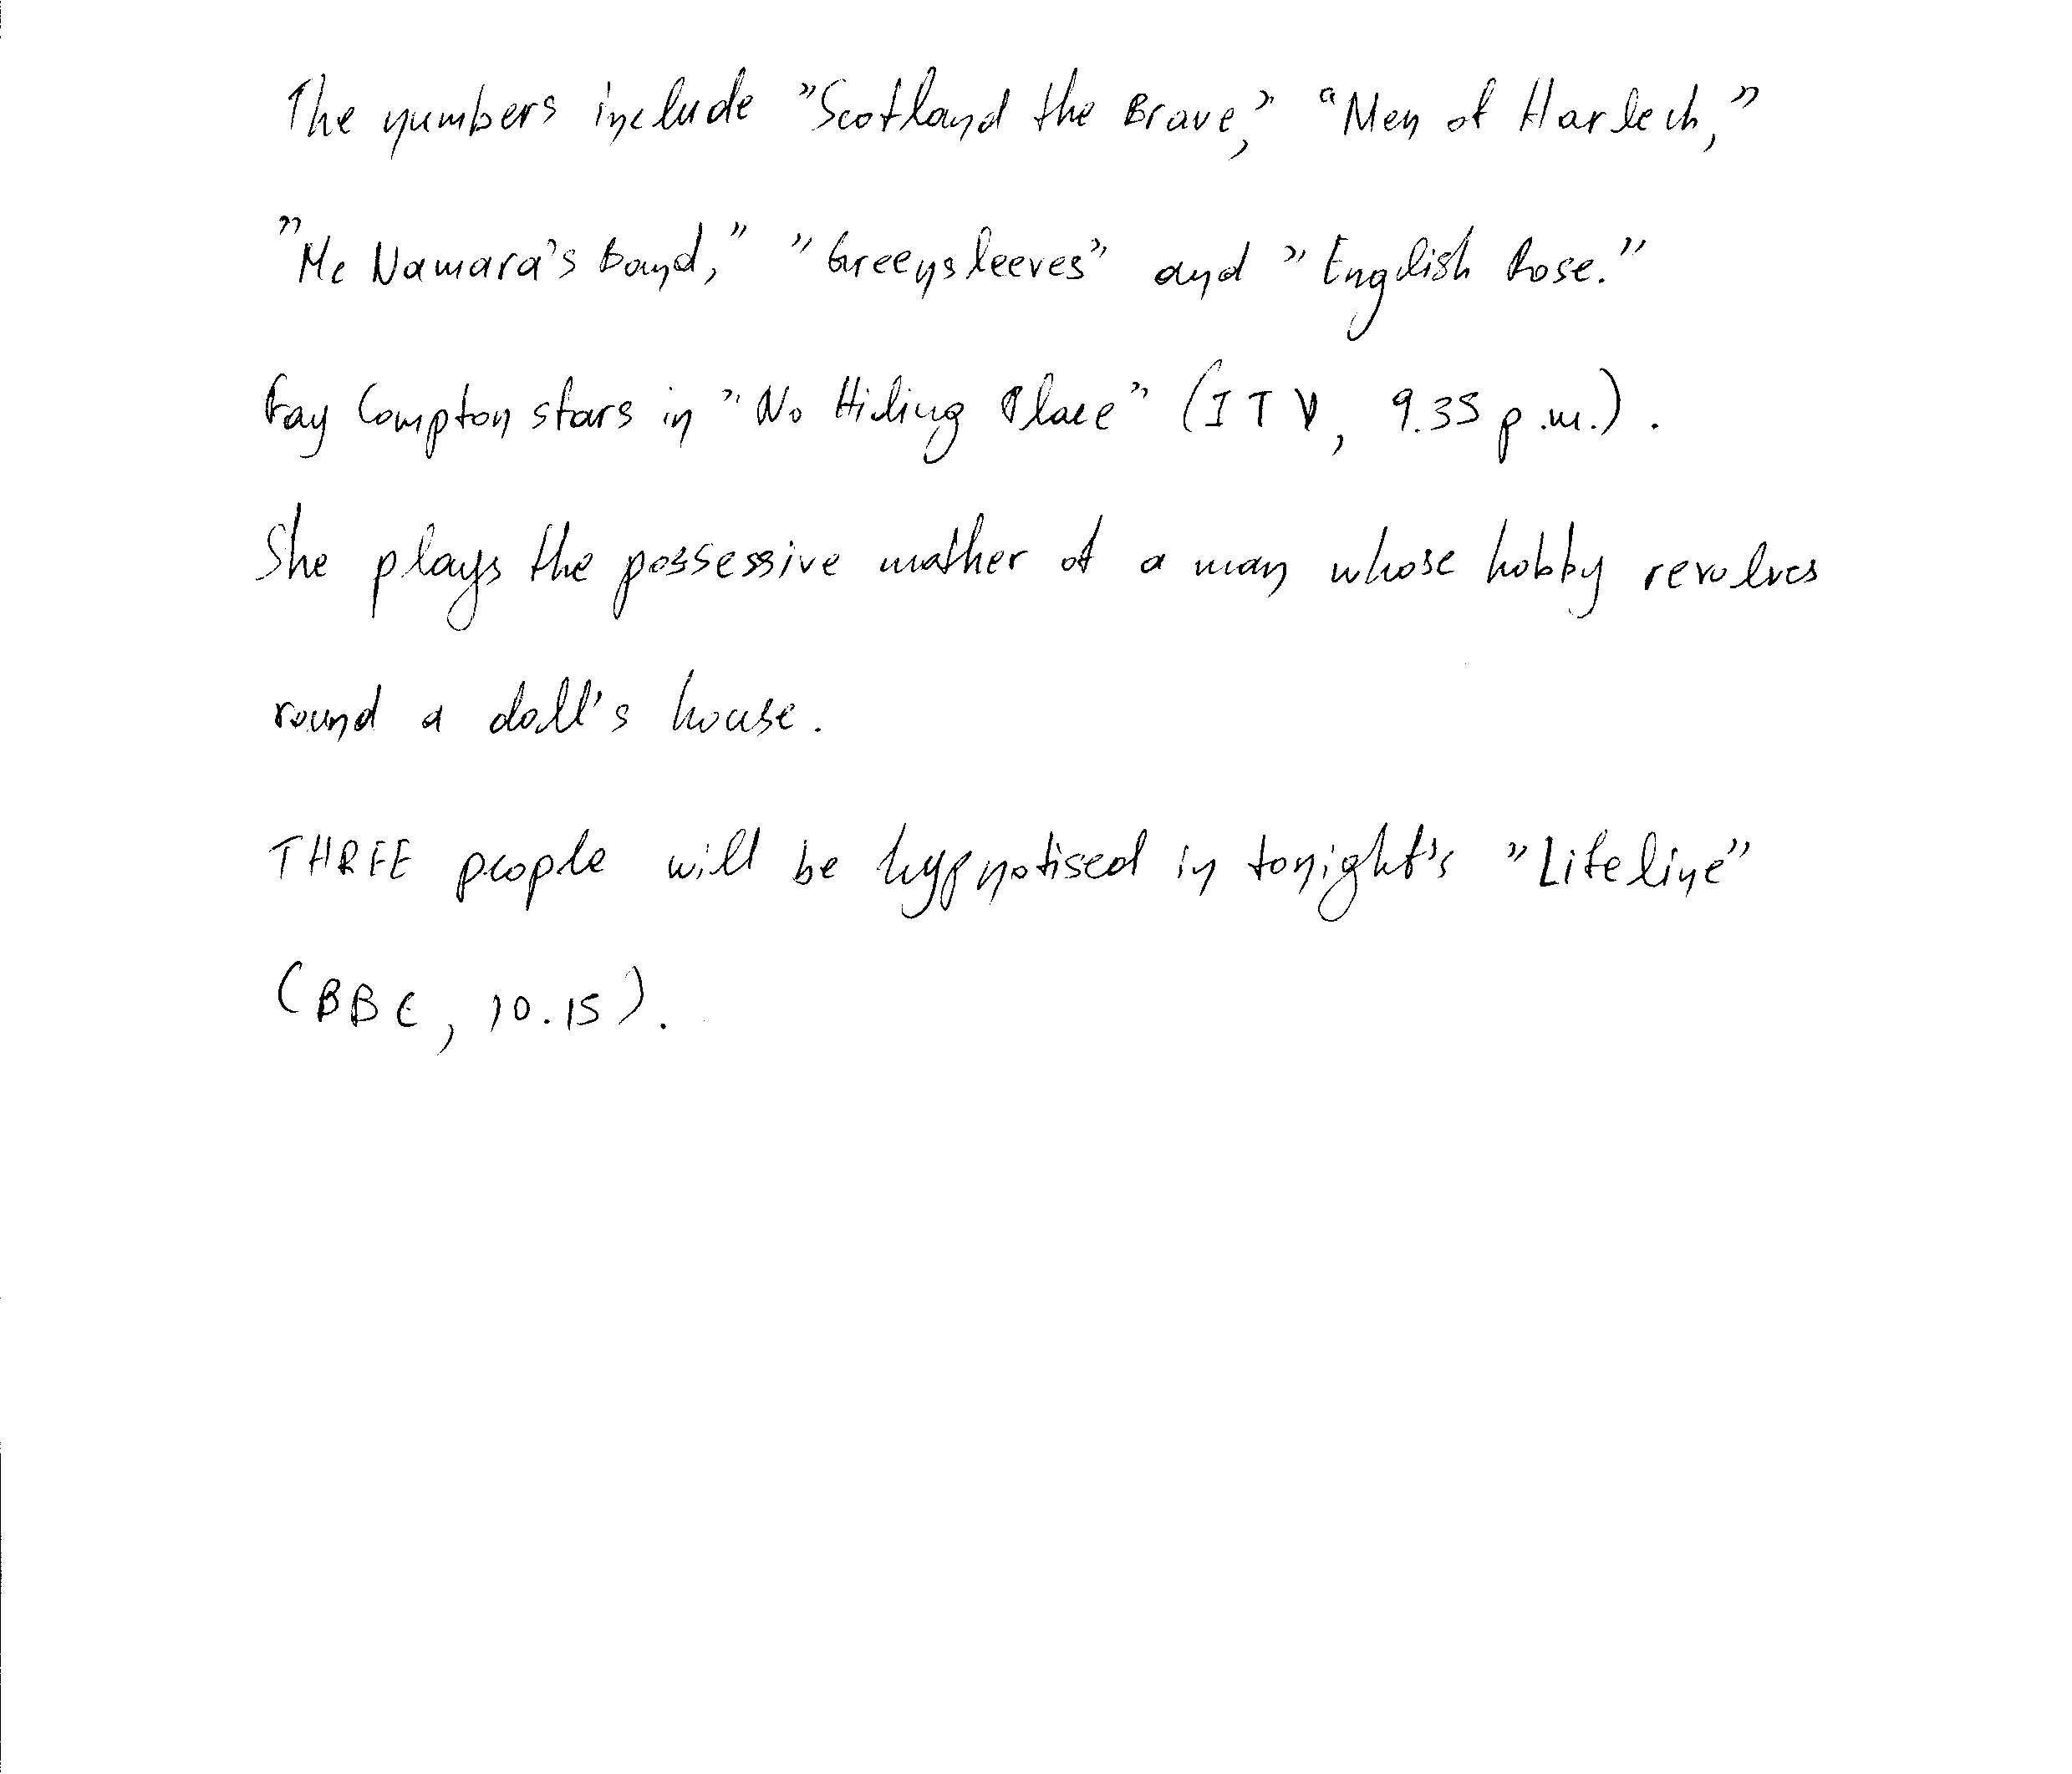 The numbers include "Scotland the Brave," "Men of Harlech,"
"Mc Namara's Band," "Greensleeves" and "English Rose."
Fay Compton stars in "No Hiding Place" (ITV, 9.35 p.m.).
She plays the possessive mother of a man whose hobby revolves
round a doll's house.
THREE people will be hypnotised in tonight's "Lifeline"
(BBC, 10.15).